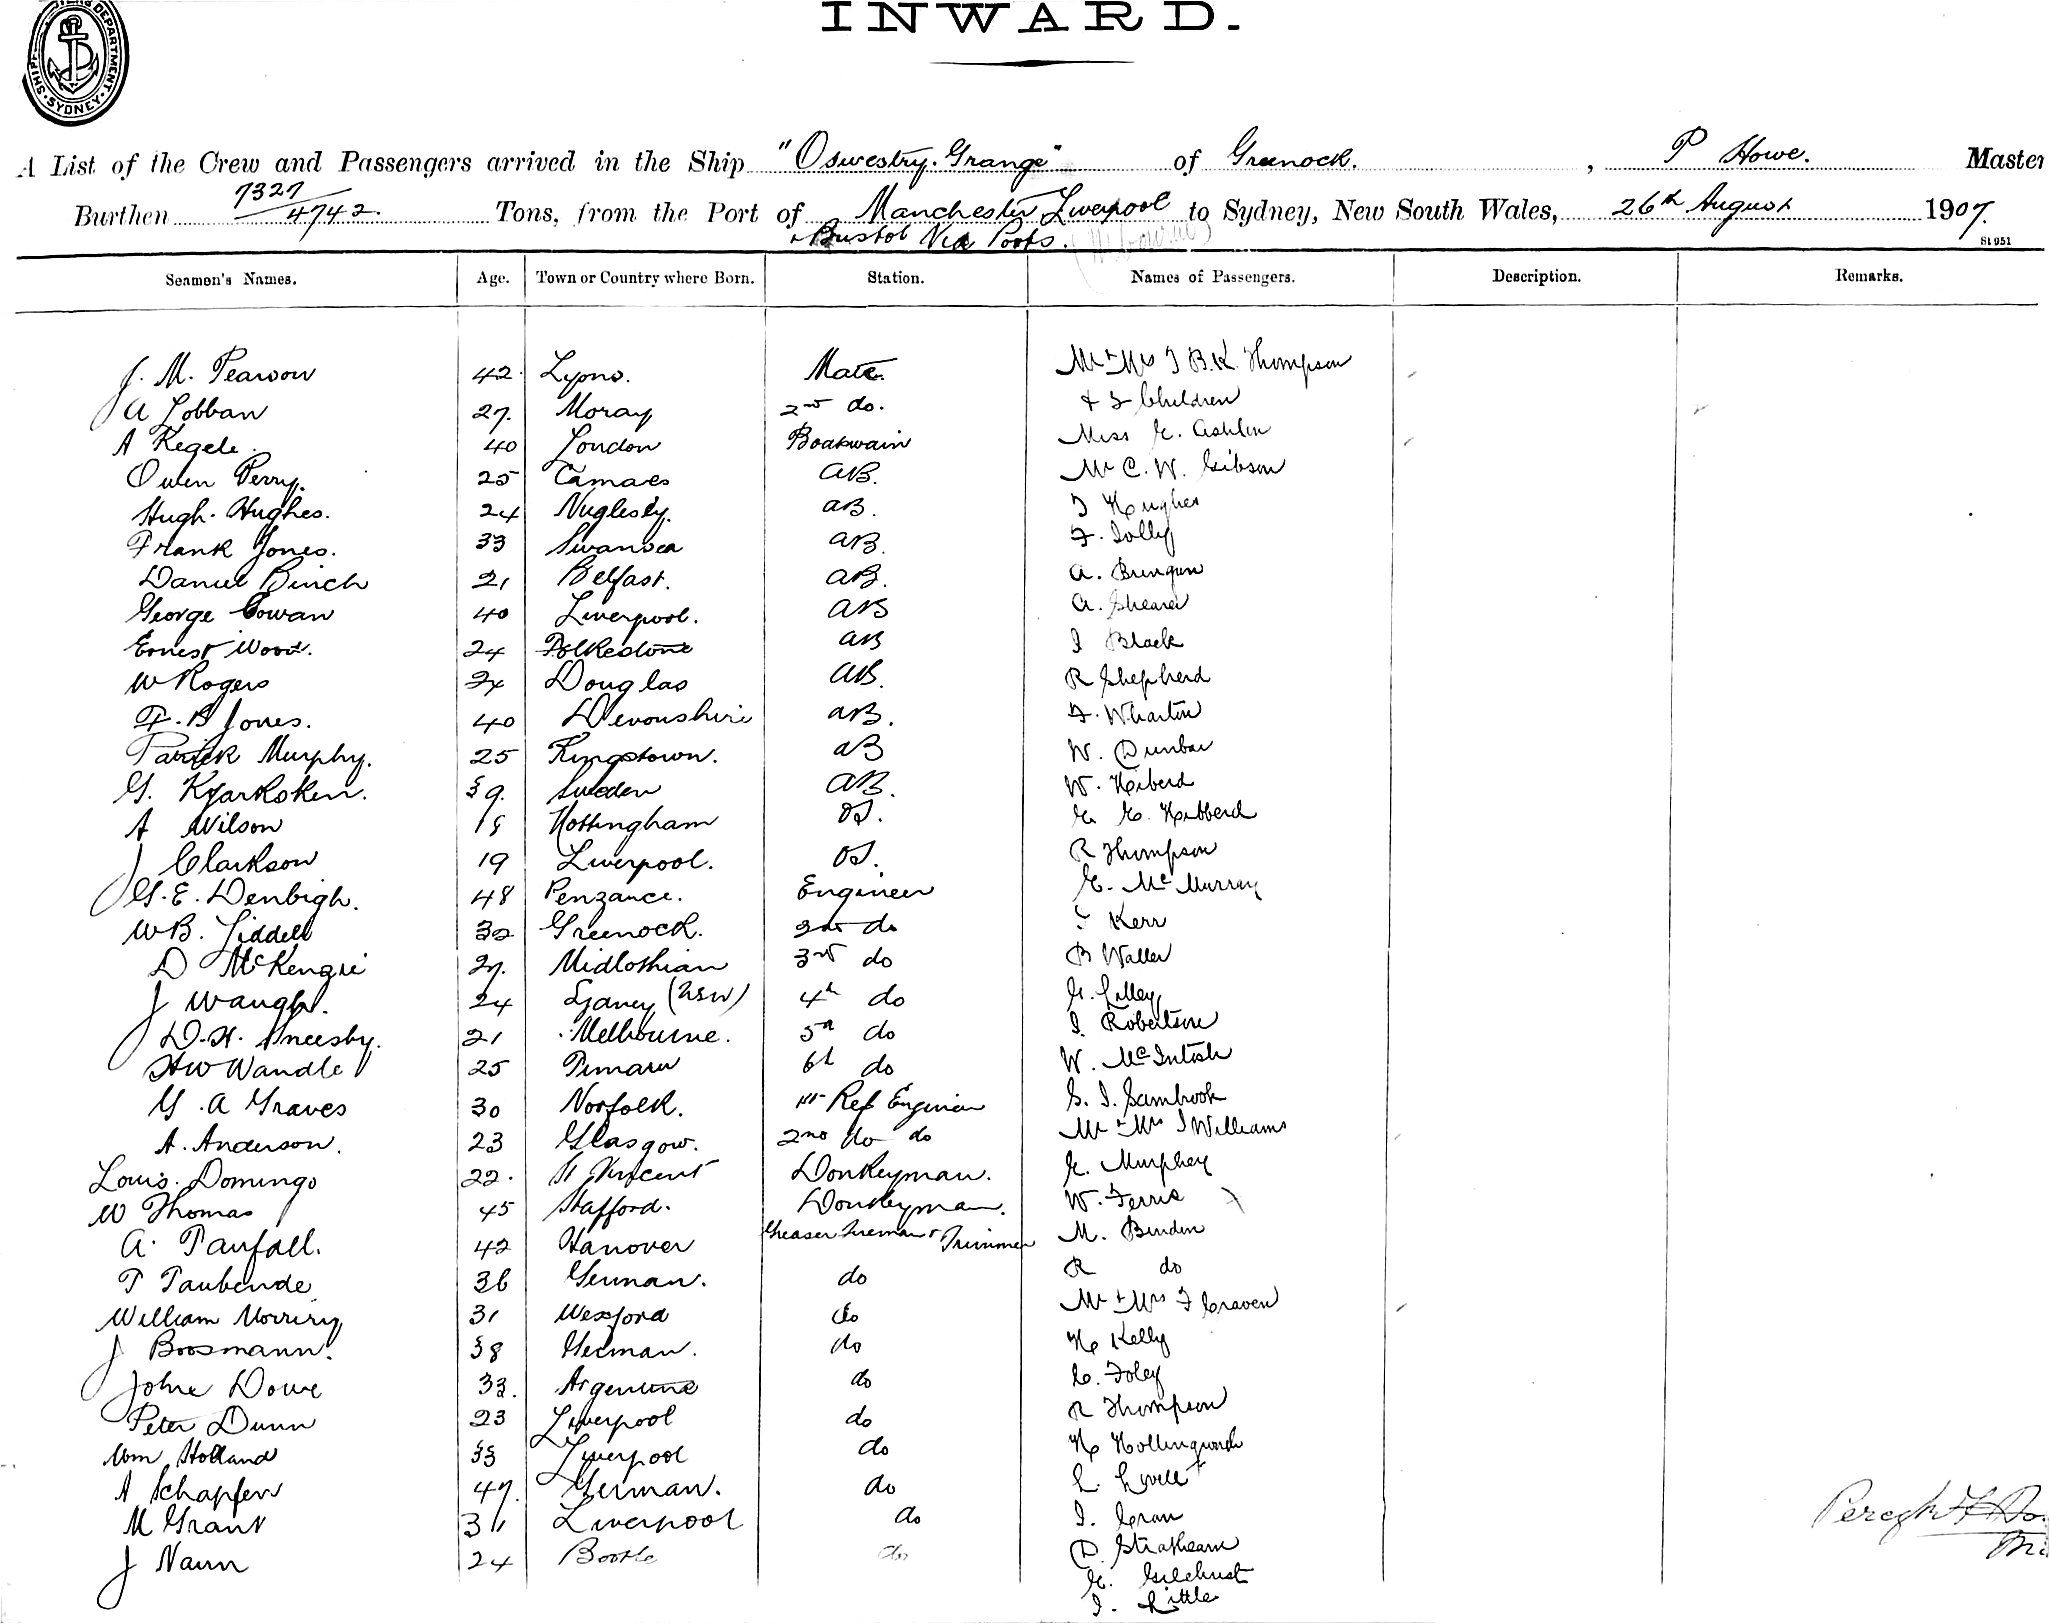 INWARD.
SHIPPING MASTERS DEPARTMENT SYDNEY
A List of the Crew and Passengers arrived in the Ship "Oswestry Grange" of Greenock. , P Howe. Master
Burthen 7327/4742 Tons, from the Port of Manchester Liverpool to Sydney, New South Wales, 26th August 1907.
& Bristol Via Ports.
St 951
Seamen's Names. Age. Town or Country where Born. Station. Names of Passengers. Description. Remarks.
J. M. Pearson 42 Lyons. Mate. Mr & Mrs J B.K. Thompson
A Lobban 27. Moray 2nd do. & 2 Children
A Kegele. 40 London Boatswain Miss E. Ashlin
Owen Perry. 25 Camaes AB. Mr C. W. Gibson
Hugh Hughes. 24 AB. J Hughes
Frank Jones. 33 Swansea AB. F. Jolly
Daniel Binch 21 Belfast. AB. A.
George Cowan 40 Liverpool. AB A. Shearer
Ernest Wood. 24 Folkestone AB J Black
W Rogers 24 Douglas AB. R Shepherd
F. B Jones. 40 Devonshire AB. F. Wharton
Patrick Murphy. 25 Kingstown. AB W. Dunbar
G. Kjarksken. 39. Sweden AB. W. Hiberd
A Wilson 18 Nottingham OS. E. E. Hibberd
J Clarkson 19 Liverpool. OS. R Thompson
G. E. Denbigh. 48 Penzance. Engineer E. McMurray
W B. Liddell 32 Greenock. 2nd do Kerr
D McKenzie 27. Midlothian 3rd do B Waller
J Waugh. 24 Sydney (NSW) 4th do G. Lilley
D. H. Sneesby. 21 Melbourne. 5th do J. Robertson
H W Wandle 25 Timaru 6th do W. McIntosh
G. A Graves 30 Norfolk. 1st Ref Engineer S. J. Sambrook
A. Anderson. 23 Glasgow. 2nd do do Mr & Mrs J Williams
Louis Domingo 22. St Vincent Donkeyman. E. Murphey
W Thomas 45 Stafford. Donkeyman. W. Ferris
A. Panfall. 42 Hanover Greaser Fireman & Trimmer M. Bindon
P Taubende 36 German. do R do
William Morriry 31 Wexford do Mr & Mrs F Craven
J Boosmann. 38 German. do H Kelly
John Dowe 33. Argentine do C. Foley
Peter Dunn 23 Liverpool do R Thompson
Wm Holland 33 Liverpool do H Hollingworth
A Schapfen 47. German. do L. Lovell
M Grant 31 Liverpool do J. Cran
J Nann 24 Bootle do D. Strathearn
E. Gilchrist
J. Little